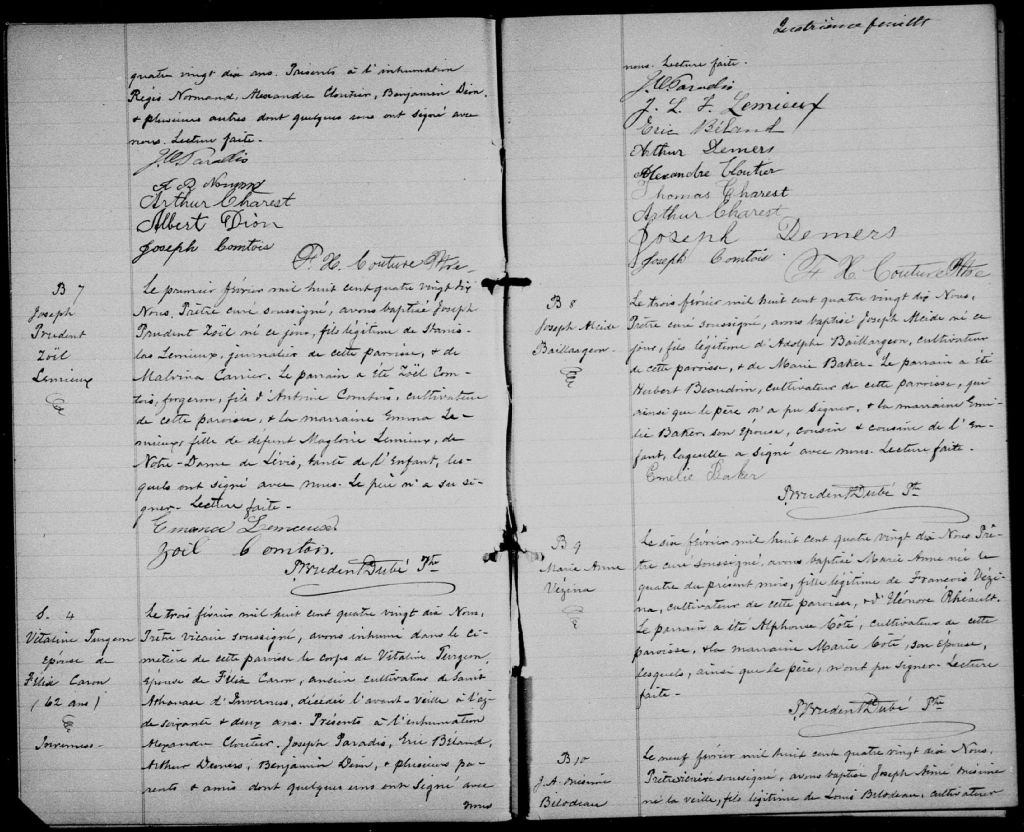 quatre vingt dix ans. Présents à l'inhumation
Régis Normand, Alexandre Cloutier, Benjamin Dion,
& plusieurs autres dont quelques uns ont signé avec
nous. Lecture faite.
J. O Paradis
Arthur Charest
Albert Dion
Joseph Comtois
F X. Couture Ptre
B 7
Joseph
Prudent
Zoël
Lemieux
Le premier février mil huit cent quatre vingt dix
Nous, Prêtre curé soussigné, avons baptisé Joseph
Prudent Zoël né ce jour, fils légitime de Stanis-
las Lemieux, journalier de cette paroisse, & de
Malvina Carrier. Le parrain a été Zoël Com-
tois, forgeron, fils d'Antoine Comtois, cultivateur
de cette paroisse, & la marraine Emma Le-
mieux, fille de defunt Magloire Lemieux, de
Notre-Dame de Lévis, tante de l'Enfant, les-
quels ont signé avec nous. Le père n'a su si-
gner. Lecture faite.
Emma Lemieux
Zoël Comtois
Prudent Dubé Ptre
S. 4
Vitaline Turgeon
Epouse de
Félix Caron
(62 ans)
Inverness
Le trois février mil huit cent quatre vingt dix Nous,
Prêtre vicaire soussigné, avons inhumé dans le ci-
metière de cette paroisse le corps de Vitaline Turgeon,
Epouse de Félix Caron, ancien cultivateur de Saint
Athanase d'Inverness, décédée l'avant-veille à l'âge
de soixante & deux ans. Présents à l'inhumation
Alexandre Cloutier, Joseph Paradis, Eric Béland,
Arthur Demers, Benjamin Dion, & plusieurs pa-
rents & amis dont quelques uns ont signé avec
nous
Quatrième feuillet
nous. Lecture faite.
J. O Paradis
J. L. F. Lemieux
Eric Béland
Arthur Demers
Alexandre Cloutier
Thomas Charest
Arthur Charest
Joseph Demers
Joseph Comtois
F X. Couture Ptre
B 8
Joseph Alcide
Baillargeon
Le trois février mil huit cent quatre vingt dix Nous,
Prêtre curé soussigné, avons baptisé Joseph Alcide né ce
jour, fils légitime d'Adolphe Baillargeon, cultivateur
de cette paroisse, & de Marie Baker. Le parrain a été
Hubert Beaudoin, cultivateur de cette paroisse, qui
ainsi que le père n'a pu signer, & la marraine Emi-
lie Baker, son Epouse, cousin & cousine de l'En-
fant, laquelle a signé avec nous. Lecture faite.
Emélie Baker
Prudent Dubé Ptre
B 9
Marie Anne
Vézina
Le six février mil huit cent quatre vingt dix Nous Prê-
tre curé soussigné, avons baptisé Marie Anne née le
quatre du présent mois, fille légitime de François Vézi-
na, cultivateur de cette paroisse, & d'Eléonore Rhéault.
Le parrain a été Alphonse Côté, cultivateur de cette
paroisse, & la marraine Marie Côté, son Epouse,
lesquels, ainsi que le père, n'ont pu signer. Lecture
faite.
Prudent Dubé Ptre
B 10
J. A.
Bilodeau
Le neuf février mil huit cent quatre vingt dix Nous,
Prêtre vicaire soussigné, avons baptisé Joseph Aimé
né la veille, fils légitime de Louis Bilodeau, cultivateur